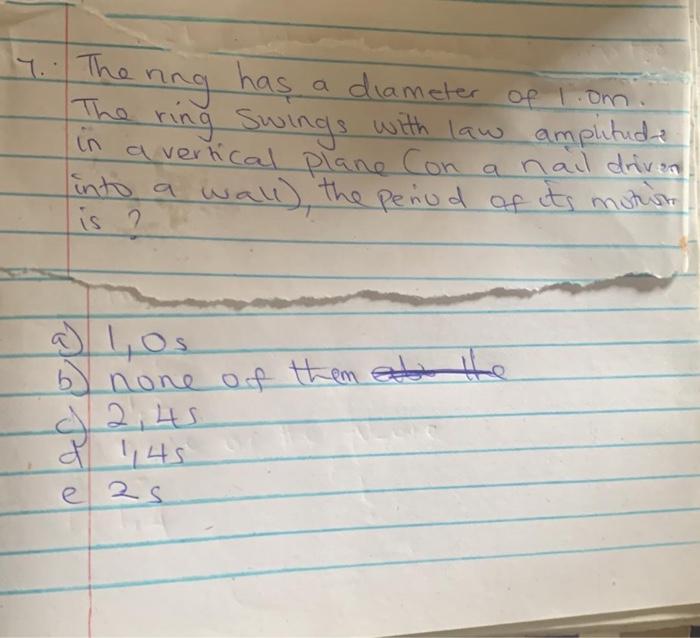 7. The ring has a diameter of 1.0m.
The ring swings with law amplitude
in a vertical plane (on a nail driven
into a wall), the period of its motion
is ?
a) 1,0s
b) none of them the
c) 2,4s
d 1,4s
e 2s